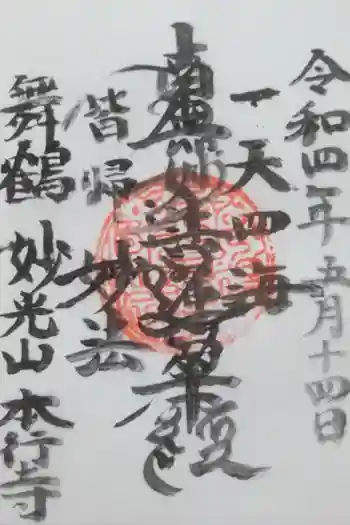 令和四年五月十四日
一天四海
南無妙法蓮華経
皆帰妙法
舞鶴 妙光山 本行寺